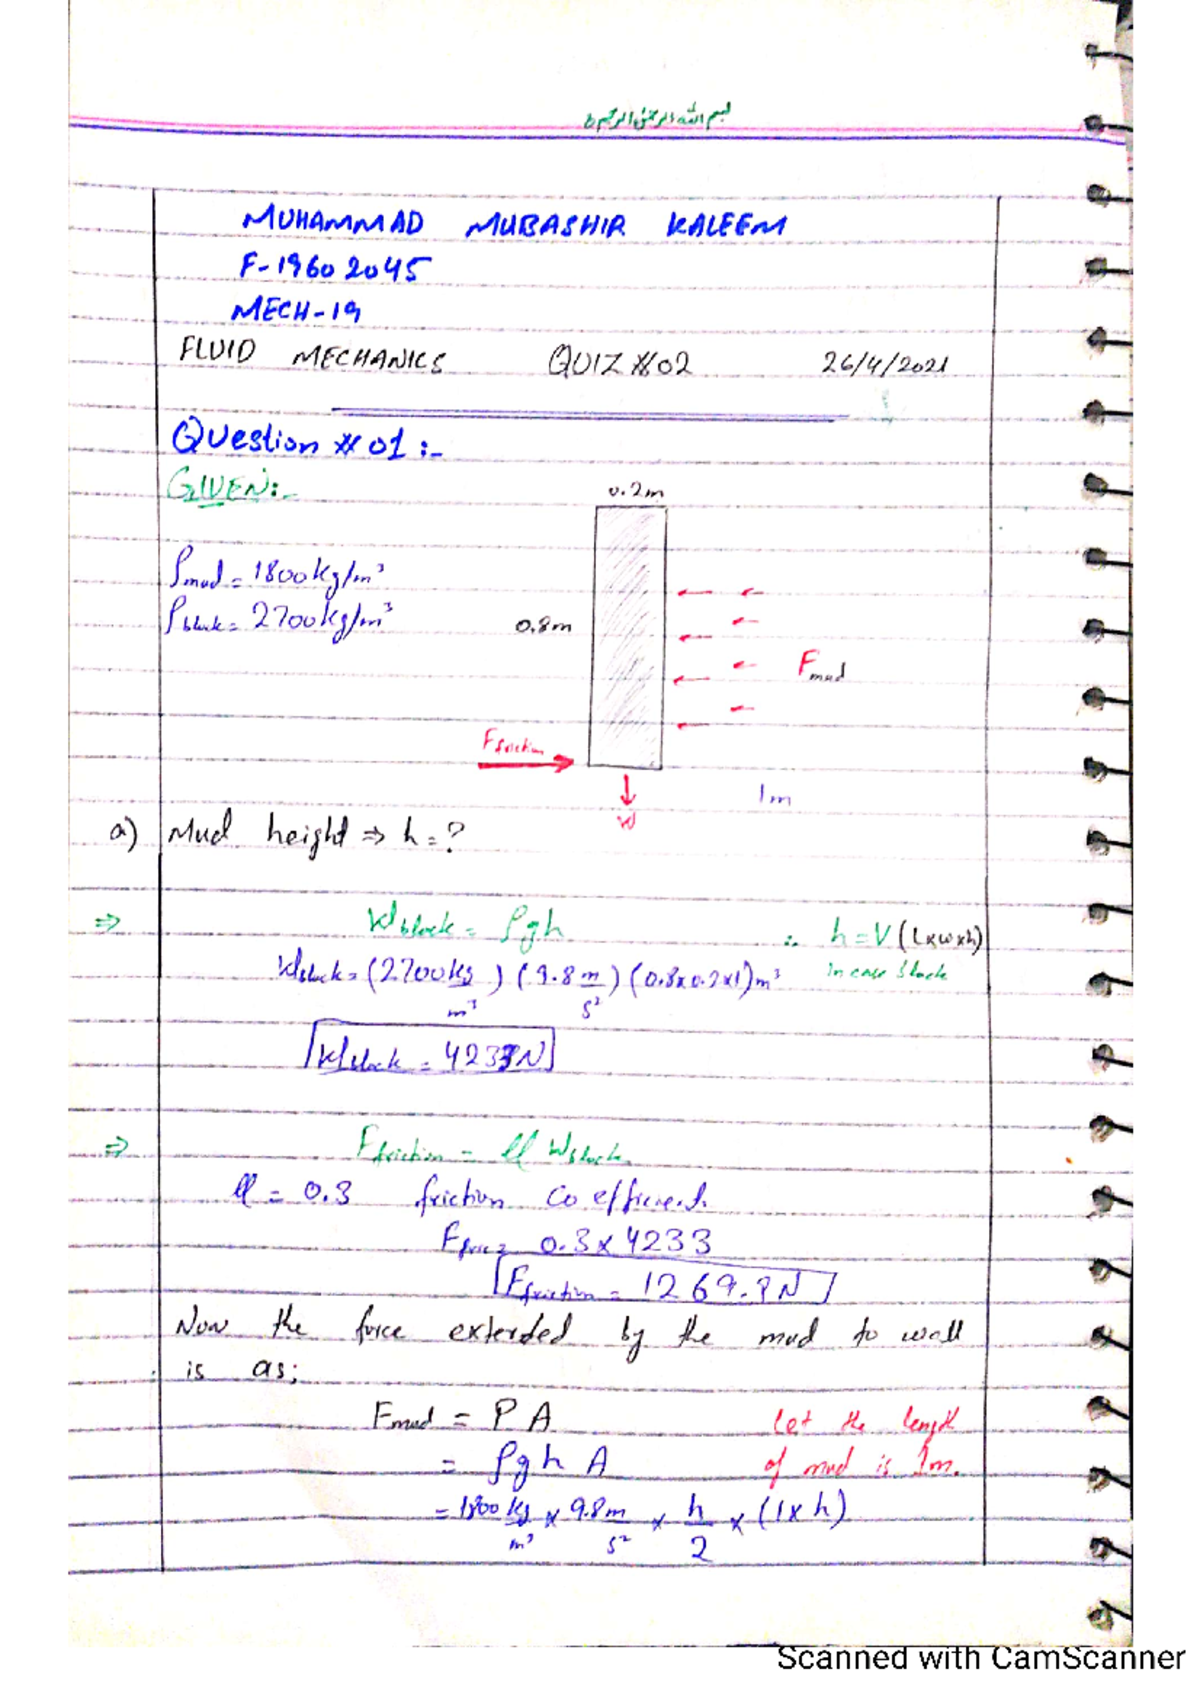 بسم الله الرحمن الرحيم
MUHAMMAD MUBASHIR KALEEM
F-19602045
MECH-19
FLUID MECHANICS QUIZ #02 26/4/2021
Question #01:-
GIVEN:-
0.2m
ρmud = 1800kg/m³
ρblock = 2700kg/m³
0.8m
Fmud
Ffriction
1m
W
a) Mud height ⇒ h = ?
⇒ Wblock = ρgh ∴ h = V (L×w×h)
in case block
Wblock = (2700 kg/m³) (9.8 m/s²) (0.8x0.2x1)m³
Wblock = 4233N
⇒ Ffriction = μ Wblock
μ = 0.3 friction coefficient
Ffric = 0.3 x 4233
Ffriction = 1269.9N
Now the force exterded by the mud to wall
is as;
Fmud = P A Let the length
= ρgh A of mud is 1m.
= 1800 kg/m³ x 9.8 m/s² x h/2 x (1 x h)
Scanned with CamScanner